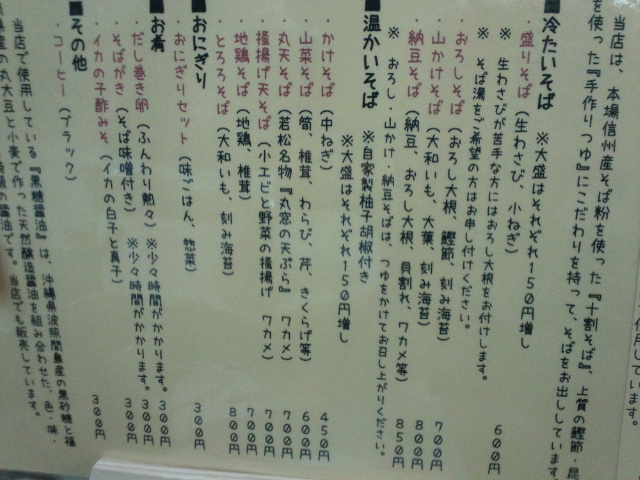 使用しています。
当店は、本場信州産そば粉を使った『十割そば』、上質の鰹節・昆
を使った『手作りつゆ』にこだわりを持って、そばをお出ししています
■冷たいそば ※大盛はそれぞれ150円増し
・盛りそば(生わさび、小ねぎ) 600円
※ 生わさびが苦手な方にはおろし大根をお付けします。
※ そば湯をご希望の方はお申し付けください。
・おろしそば(おろし大根、鰹節、刻み海苔) 700円
・山かけそば(大和いも、大葉、刻み海苔) 800円
・納豆そば(納豆、おろし大根、貝割れ、ワカメ等) 850円
※ おろし・山かけ・納豆そばは、つゆをかけてお召し上がりください。
■温かいそば ※自家製柚子胡椒付き
※大盛はそれぞれ150円増し
・かけそば(中ねぎ) 450円
・山菜そば(筍、椎茸、わらび、芹、きくらげ等) 600円
・丸天そば(若松名物『丸窓の天ぷら』 ワカメ) 700円
・掻揚げ天そば(小エビと野菜の掻揚げ ワカメ) 700円
・地鶏そば(地鶏、椎茸) 700円
・とろろそば(大和いも、刻み海苔) 800円
■おにぎり
・おにぎりセット(味ごはん、惣菜) 300円
■お肴
・だし巻き卵(ふんわり熱々)※少々時間がかかります。 300円
・そばがき(そば味噌付き)※少々時間がかかります。 300円
・イカの子酢みそ(イカの白子と真子) 300円
■その他
・コーヒー(ブラック) 300円
当店で使用している『黒糖醤油』は、沖縄県波照間島産の黒砂糖と福
県産の丸大豆と小麦で作った天然醸造醤油を組み合わせた、色・味・
の醤油です。当店でも販売しています。